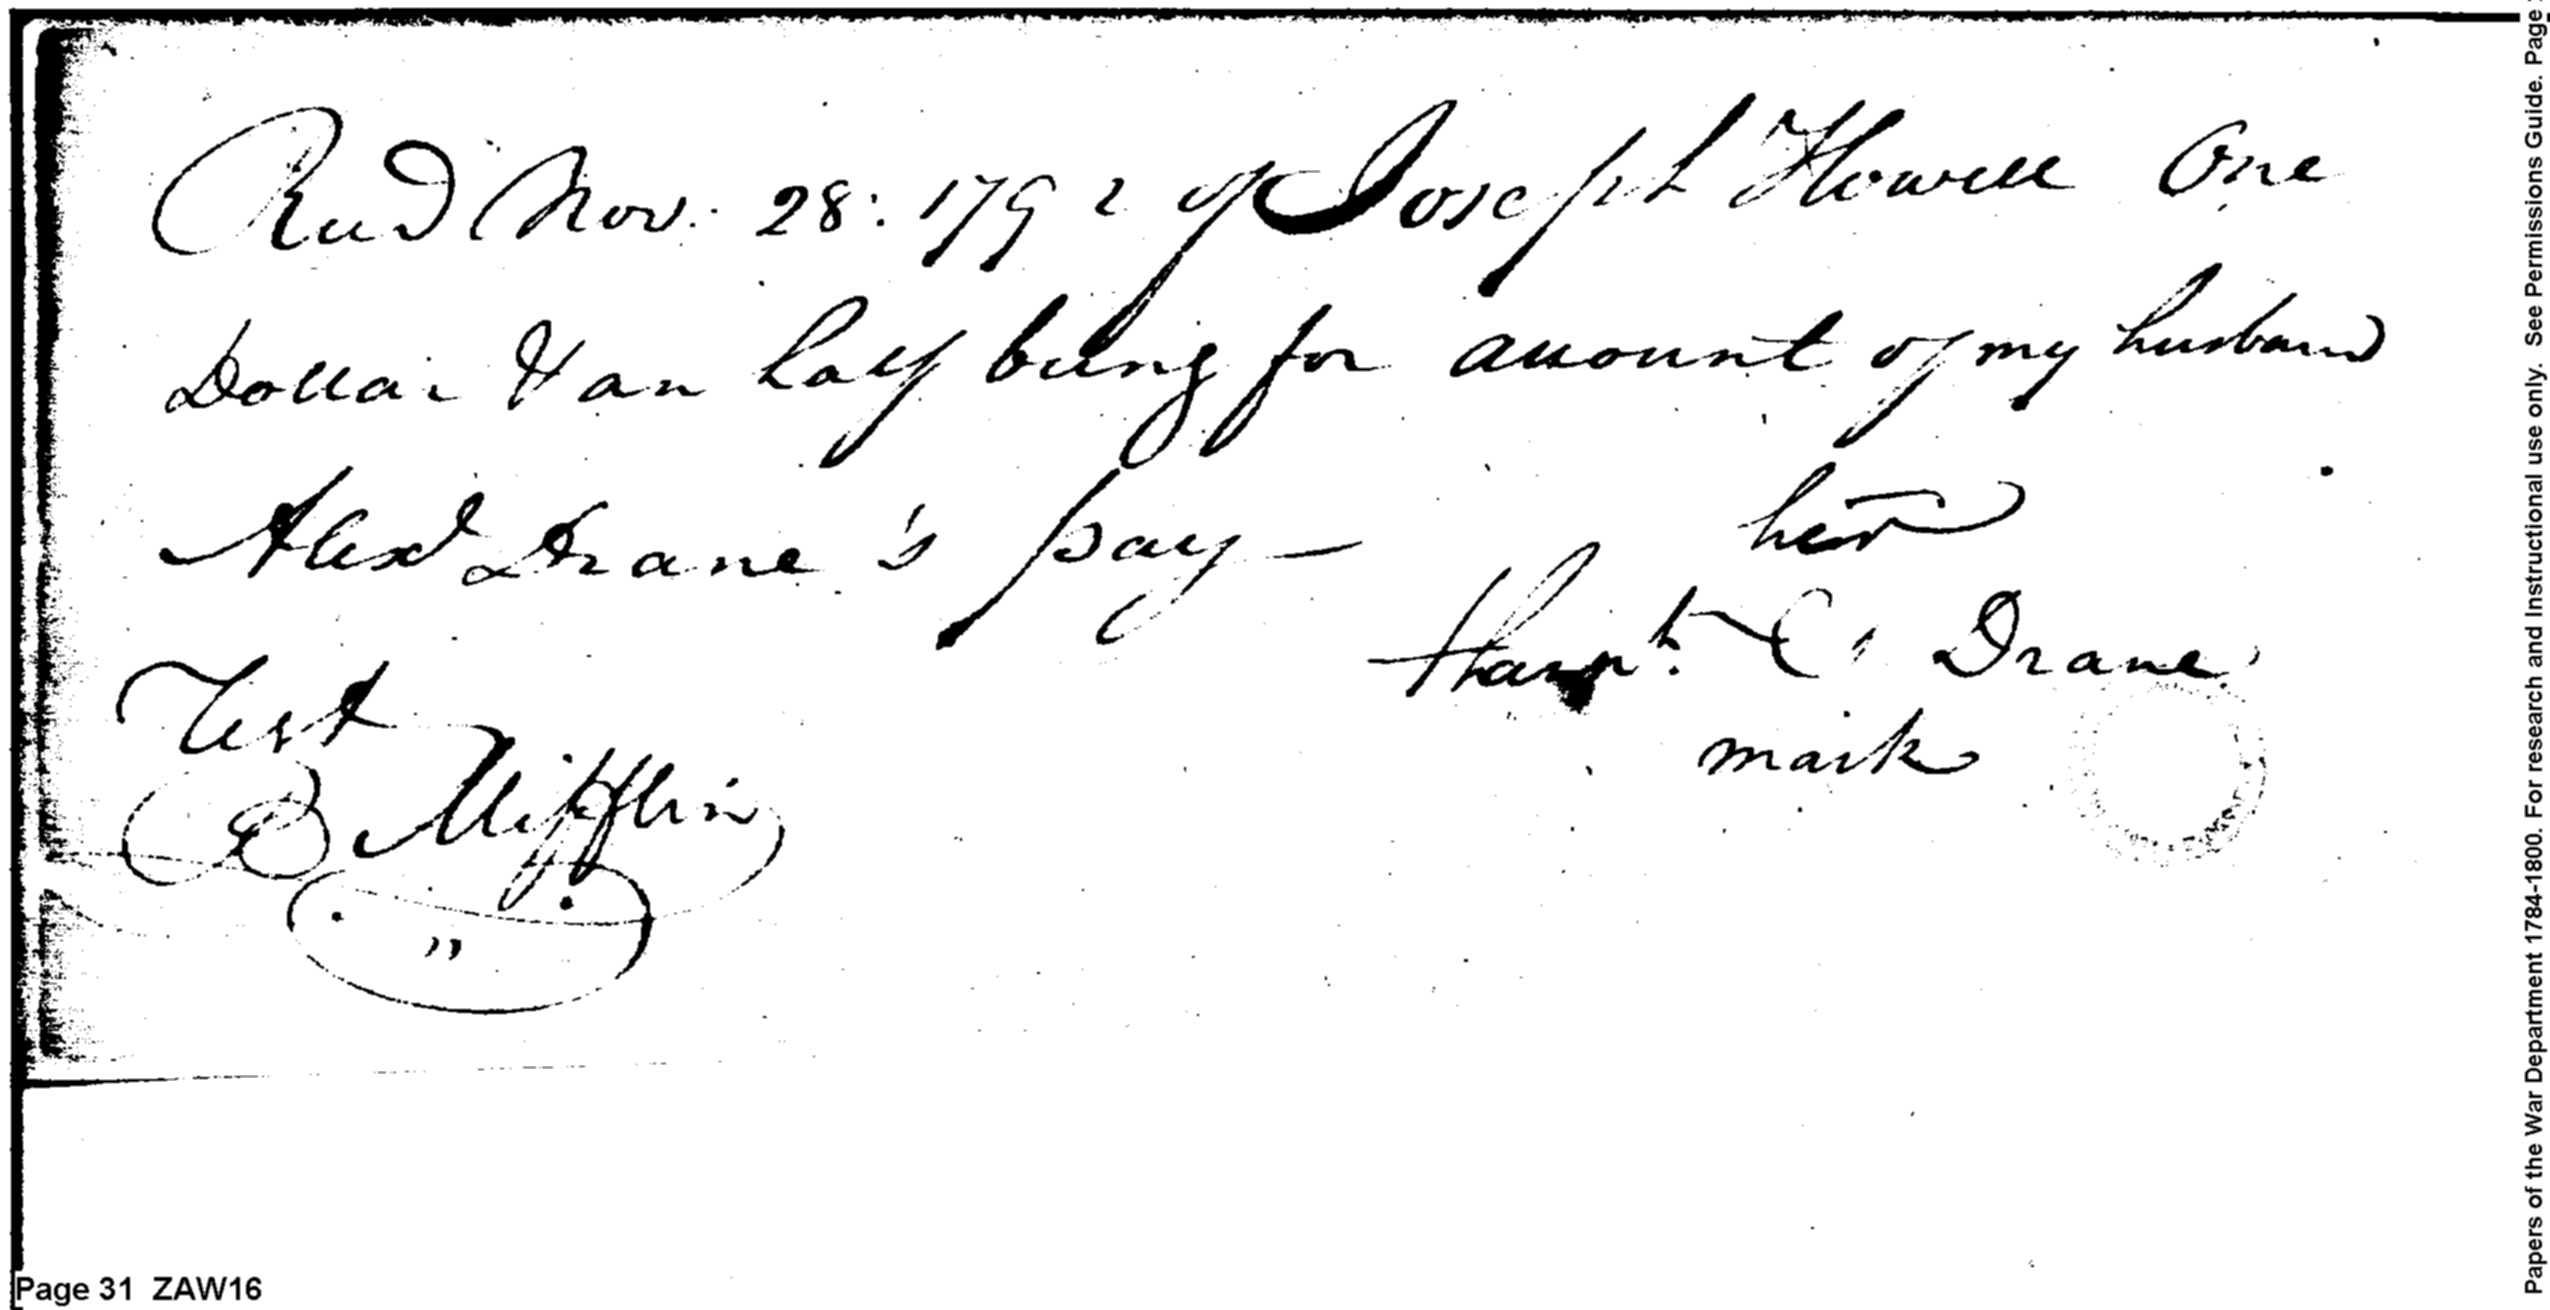 Recd Nov. 28: 1792 of Joseph Howell One
Dollar & an half being for amount of my husband
Alexd Drane's pay —
her
Hanh. C Drane
mark
Test
B Mifflin
Page 31 ZAW16
Papers of the War Department 1784-1800. For research and Instructional use only. See Permissions Guide. Page